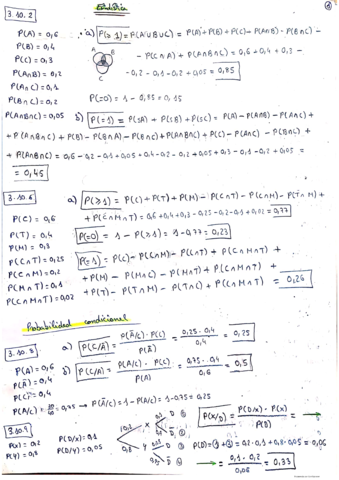 Estadística
①
3.10.2
P(A) = 0,6
P(B) = 0,4
P(C) = 0,3
P(A∩B) = 0,2
P(A∩C) = 0,1
P(B∩C) = 0,2
P(A∩B∩C) = 0,05
a) P(≥1) = P(A∪B∪C) = P(A) + P(B) + P(C) - P(A∩B) - P(B∩C) -
A B C
- P(C∩A) + P(A∩B∩C) = 0,6 + 0,4 + 0,3 -
- 0,2 - 0,1 - 0,2 + 0,05 = 0,85
P(=0) = 1 - 0,85 = 0,15
b) P(=1) = P(SA) + P(SB) + P(SC) = P(A) - P(A∩B) - P(A∩C) +
+ P(A∩B∩C) + P(B) - P(B∩A) - P(B∩C) + P(A∩B∩C) + P(C) - P(A∩C) - P(B∩C) +
+ P(A∩B∩C) = 0,6 - 0,2 - 0,1 + 0,05 + 0,4 - 0,2 - 0,2 + 0,05 + 0,3 - 0,1 - 0,2 + 0,05 =
= 0,45
3.10.6
P(C) = 0,6
P(T) = 0,4
P(M) = 0,3
P(C∩T) = 0,25
P(C∩M) = 0,2
P(M∩T) = 0,1
P(C∩M∩T) = 0,02
a) P(≥1) = P(C) + P(T) + P(M) - P(C∩T) - P(C∩M) - P(T∩M) +
+ P(C∩M∩T) = 0,6 + 0,4 + 0,3 - 0,25 - 0,2 - 0,1 + 0,02 = 0,77
P(=0) = 1 - P(≥1) = 1 - 0,77 = 0,23
P(=1) = P(C) - P(C∩M) - P(C∩T) + P(C∩M∩T) +
+ P(M) - P(M∩C) - P(M∩T) + P(C∩M∩T) +
+ P(T) - P(T∩M) - P(T∩C) + P(C∩M∩T) = 0,26
Probabilidad condicional
P(A) = 0,6
P(Ā) = 0,4
P(C) = 0,4
a) P(C/Ā) = P(Ā/C) · P(C) / P(Ā) = 0,25 · 0,4 / 0,4 = 0,25
b) P(C/A) = P(A/C) · P(C) / P(A) = 0,75 · 0,4 / 0,6 = 0,5
= 0,75 → P(Ā/C) = 1 - P(A/C) = 1 - 0,75 = 0,25
P(X) = 0,2
P(Y) = 0,8
P(D/X) = 0,1
P(D/Y) = 0,05
P(X/D) = P(D/X) · P(X) / P(D) =
= 0,2 · 0,1 + 0,8 · 0,05 = 0,06
= 0,1 · 0,2 / 0,06 = 0,33